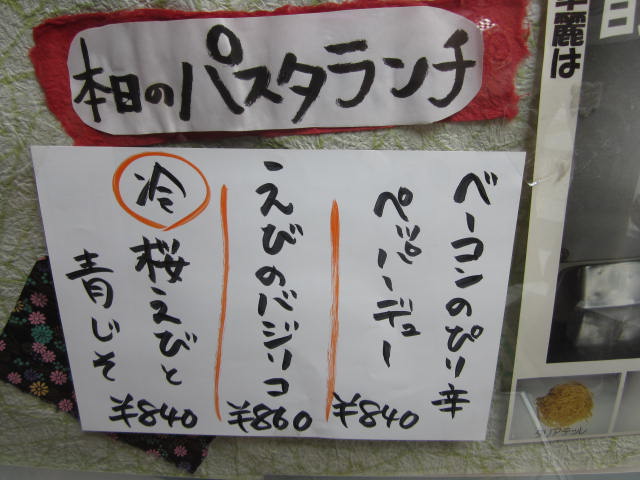 本日のパスタランチ
ベーコンのぴり辛
ペッパーデュー
¥840
えびのバジリコ
¥860
冷 桜えびと
青じそ
¥840
華麗は
日
タリアテッレ